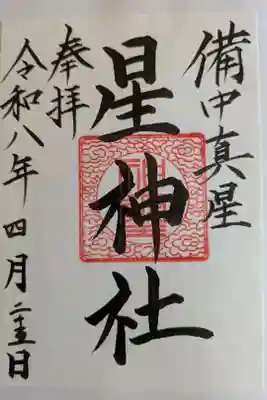 備中真星
星神社
奉拝
令和八年四月二十五日